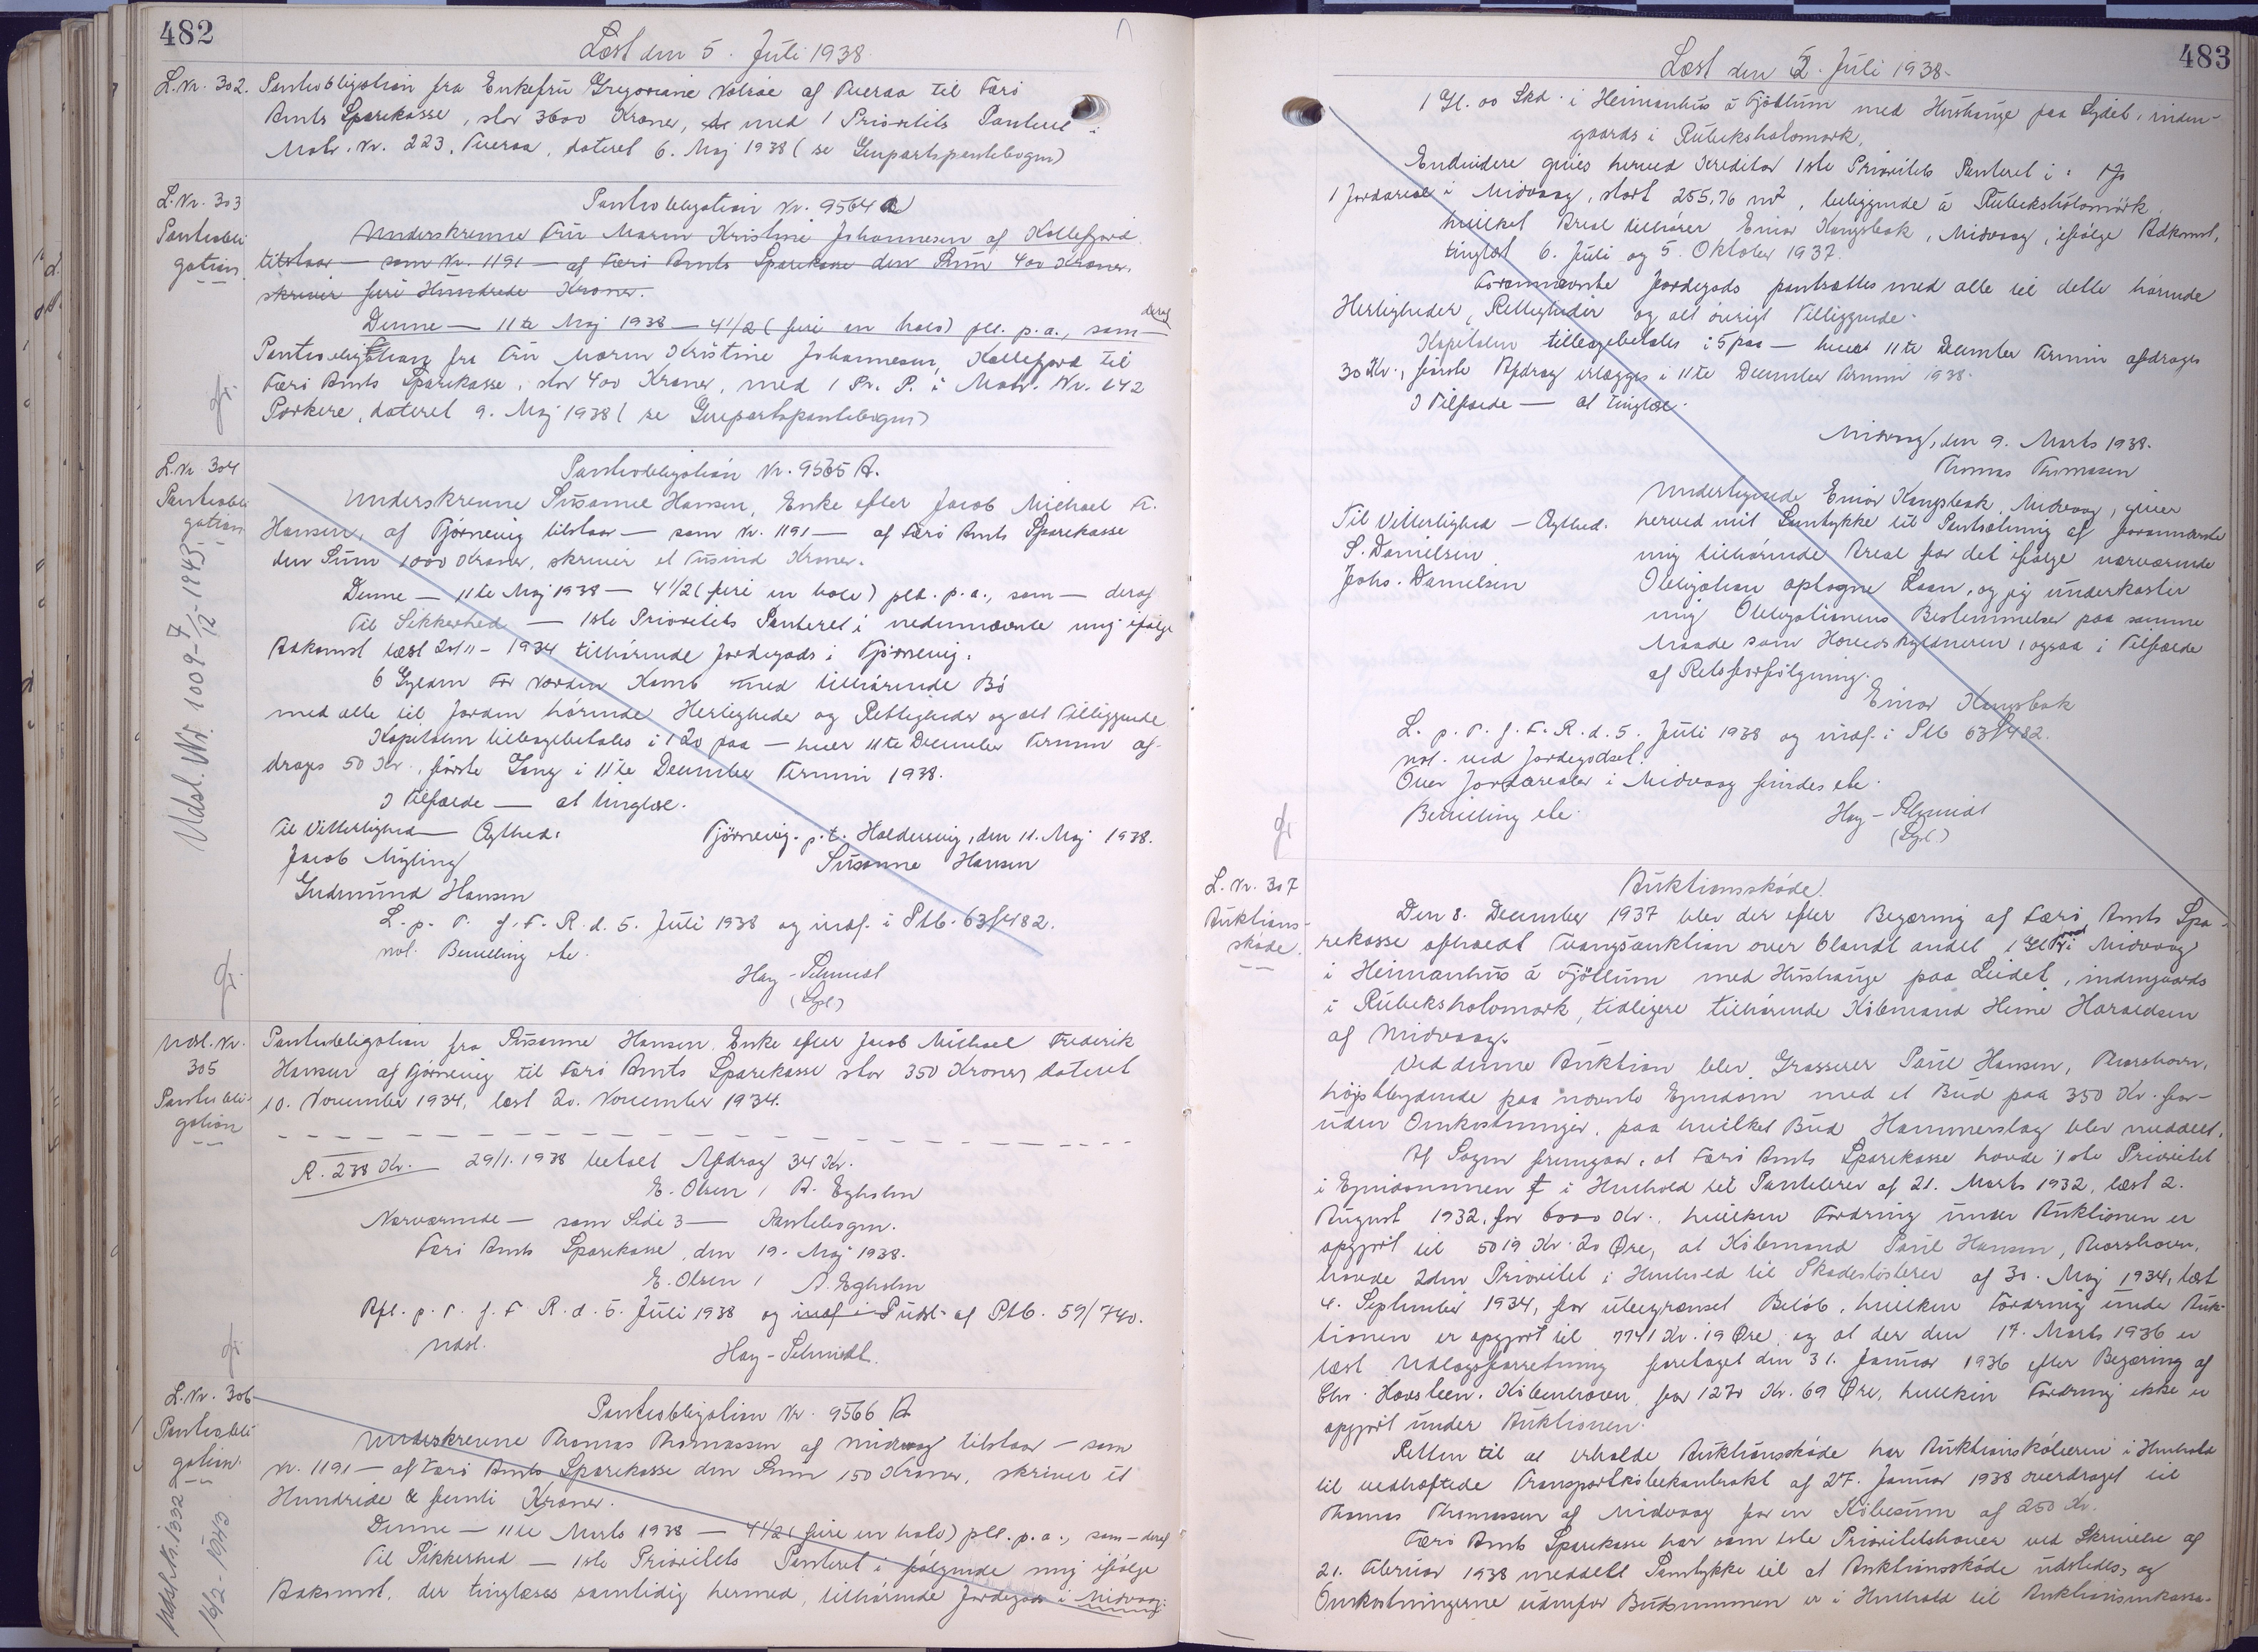 482
Læst den 5. Juli 1938
L. Nr. 302. Pantobligation fra Enkefru Gregoriane af Tveraa til Færø
Amts Sparekasse, stor 3600 Kroner, med 1 Prioritets Panteret i
Matr. Nr. 223, Tveraa, dateret 6. Maj 1938 (se Genpartspantebogen)
L. Nr. 303
Pantobli
gation
Pantobligation Nr. 9564 A
Underskrevne Fru Maren Kristine Johannesen af Kollefjord
tilstaar — som Nr. 1191 — af Færø Amts Sparekasse den Sum 400 Kroner,
skriver fire Hundrede Kroner.
Denne — 11te Maj 1938 — 4 1/2 (fire en halv) pct. p.a., som — deraf
Pantobligation fra Fru Maren Kristine Johannesen, Kollefjord til
Færø Amts Sparekasse, stor 400 Kroner, med 1 Pr. P. i Matr. Nr. 142
Porkere, dateret 9. Maj 1938 (se Genpartspantebogen)
L. Nr. 304
Pantobli
gation
Udsl. Nr. 1009-7/12-1943
Pantobligation Nr. 9565 A.
Underskrevne Susanne Hansen, Enke efter Jacob Michael F.
Hansen, af Tjørnevig tilstaar — som Nr. 1191 — af Færø Amts Sparekasse
den Sum 1000 Kroner, skriver et Tusind Kroner.
Denne — 11te Maj 1938 — 4 1/2 (fire en halv) pct. p.a., som — deraf
Til Sikkerhed — 1ste Prioritets Panteret i nedennævnte mig ifølge
Adkomst læst 20/11-1934 tilhørende Jordegods i Tjørnevig.
6 Gylden For Norden Kamb med tilhørende Bø
med alle til Jorden hørende Herligheder og Rettigheder og alt Tilliggende
Kapitalen tilbagebetales i 20 paa — hver 11te December Termin af-
drages 50 Kr., første Gang i 11te December Termin 1938.
I Tilfælde — at tinglæse.
Til Vitterlighed — Ægthed:
Tjørnevig. p.t. Haldervig, den 11. Maj 1938.
Jacob Nygling
Susanne Hansen
Gudmund Hansen
L. p. T. f. F. R. d. 5. Juli 1938 og indf. i Ptb. 63/482.
nol. Bevilling etc.
Hay-Schmidt
(Sgl)
Udsl. Nr.
305
Pantobli-
gation
Pantobligation fra Susanne Hansen, Enke efter Jacob Michael Frederik
Hansen af Tjørnevig til Færø Amts Sparekasse stor 350 Kroner, dateret
10. November 1934, læst 20. November 1934.
R. 238 Kr. 29/1. 1938 betalt Afdrag 34 Kr.
E. Olsen / A. Egholm
Nærværende — som Side 3 — Pantebogen.
Færø Amts Sparekasse, den 19. Maj 1938.
E. Olsen / A. Egholm
Afl. p. T. f. F. R. d. 5. Juli 1938 og indf. i Udsl. af Ptb. 59/740.
Udsl.
Hay-Schmidt.
L. Nr. 306
Pantobli
gation
Udsl. Nr. 1332
16/2-1943
Pantobligation Nr. 9566 A
Underskrevne Thomas Thomassen af Midvaag tilstaar — som
Nr. 1191 — af Færø Amts Sparekasse den Sum 150 Kroner, skriver et
Hundrede & femti Kroner.
Denne — 11te Marts 1938 — 4 1/2 (fire en halv) pct. p.a., som — deraf
Til Sikkerhed — 1ste Prioritets Panteret i følgende mig ifølge
Adkomst, der tinglæses samtidig hermed, tilhørende Jordegods i Midvaag:
483
Læst den 5. Juli 1938.
1 Gl. 00 Skd. i Heimanhus á Fjøllum med Hushauge paa Lydet, inden-
gaards i Rubeksholomørk.
Endvidere gives herved Kreditor 1ste Prioritets Panteret i:
1 Jordareal i Midvaag, stort 255,76 m², beliggende á Rubeksholomørk,
hvilket Areal tilhører Einar Kongsbak, Midvaag, ifølge Adkomst,
tinglæst 6. Juli og 5. Oktober 1937.
Forannævnte Jordegods pantsættes med alle til dette hørende
Herligheder, Rettigheder og alt øvrigt Tilliggende.
Kapitalen tilbagebetales i 5 paa — hver 11te December Termin afdrages
30 Kr., første Afdrag erlægges i 11te December Termin 1938.
I Tilfælde — at tinglæse.
Midvaag, den 9. Marts 1938.
Thomas Thomassen
Undertegnede Einar Kongsbak, Midvaag, giver
Til Vitterlighed — Ægthed:
herved mit Samtykke til Pantsætning af forannævnte
S. Danielsen
mig tilhørende Areal for det ifølge nærværende
Johs. Danielsen
Obligation optagne Laan, og jeg underkaster
mig Obligationens Bestemmelser paa samme
Maade som Hovedskyldneren, ogsaa i Tilfælde
af Retsforfølgning.
Einar Kongsbak
L. p. T. f. F. R. d. 5. Juli 1938 og indf. i Ptb 63/482.
nol. ved Jordegodset.
Over Jordarealer i Midvaag findes etc.
Bevilling etc.
Hay-Schmidt
(Sgl.)
L. Nr. 307
Auktions-
skøde.
Auktionsskøde.
Den 8. December 1937 blev der efter Begæring af Færø Amts Spa-
rekasse afholdt Tvangsauktion over blandt andet 1 Gl. i Midvaag
i Heimanhus á Fjøllum med Hushauge paa Leidet, indengaards
i Rubeksholomørk, tidligere tilhørende Købmand Heine Haraldsen
af Midvaag.
Ved denne Auktion blev Grosserer Poul Hansen, Thorshavn,
højstbydende paa nævnte Ejendom med et Bud paa 350 Kr. for-
uden Omkostninger, paa hvilket Bud Hammerslag blev meddelt.
Af Sagen fremgaar, at Færø Amts Sparekasse havde 1ste Prioritet
i Ejendommen i Henhold til Pantebrev af 21. Marts 1932, læst 2.
August 1932, for 6000 Kr., hvilken Fordring under Auktionen er
opgjort til 5019 Kr. 20 Øre, at Købmand Poul Hansen, Thorshavn,
havde 2den Prioritet i Henhold til Skadesløsbrev af 30. Maj 1934, læst
4. September 1934, for ubegrænset Beløb, hvilken Fordring under Auk-
tionen er opgjort til 7741 Kr. 19 Øre og at der den 17. Marts 1936 er
læst Udlægsforretning foretaget den 31. Januar 1936 efter Begæring af
Chr. Havsteen, København for 1270 Kr. 69 Øre, hvilken Fordring ikke er
opgjort under Auktionen.
Retten til at erholde Auktionsskøde har Auktionskøberen i Henhold
til vedhæftede Transportkøbekontrakt af 27. Januar 1938 overdraget til
Thomas Thomassen af Midvaag for en Købesum af 250 Kr.
Færø Amts Sparekasse har som 1ste Prioritetshaver ved Skrivelse af
21. Februar 1938 meddelt Samtykke til at Auktionsskøde udstedes, og
Omkostningerne udenfor Budsummen er i Henhold til Auktionsinkasso-